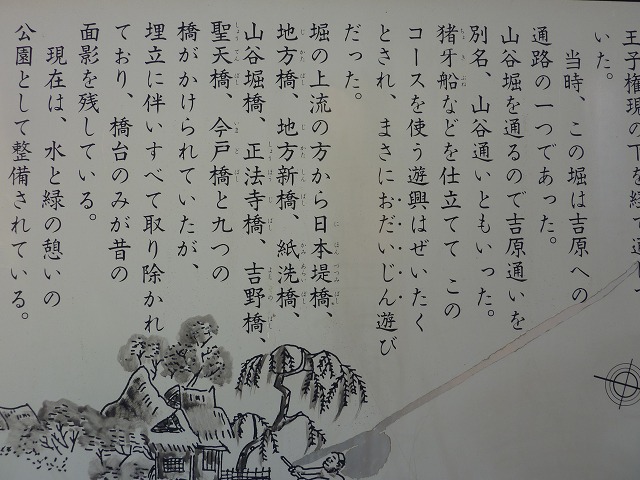 王子権現の下を経て
いた。
当時、この堀は吉原への
通路の一つであった。
山谷堀を通るので吉原通いを
別名、山谷通いともいった。
猪牙船などを仕立てて この
コースを使う遊興はぜいたく
とされ、まさにおだいじん遊び
だった。
堀の上流の方から日本堤橋、
地方橋、地方新橋、紙洗橋、
山谷堀橋、正法寺橋、吉野橋、
聖天橋、今戸橋と九つの
橋がかけられていたが、
埋立に伴いすべて取り除かれ
ており、橋台のみが昔の
面影を残している。
現在は、水と緑の憩いの
公園として整備されている。